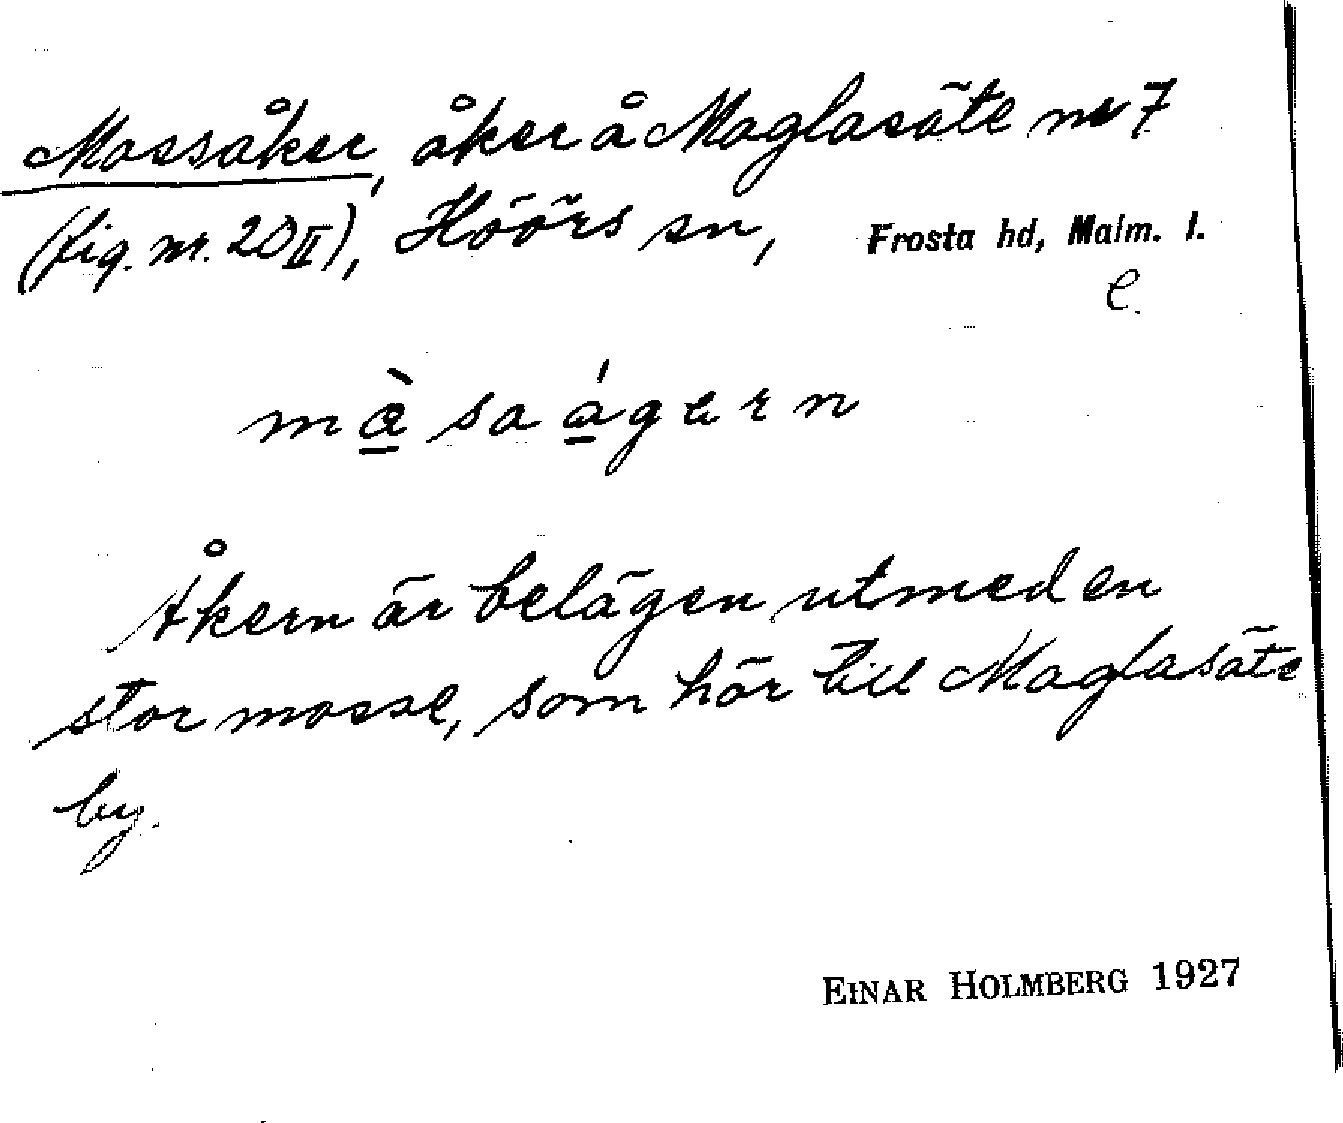 Mossåker, åker å Maglasäte nr 7
(fig. nr. 20II), Höörs sn, Frosta hd, Malm. l.
e.
sa ágern
Åkern är belägen utmed en
stor mosse, som hör till Maglasäte
by.
EINAR HOLMBERG 1927